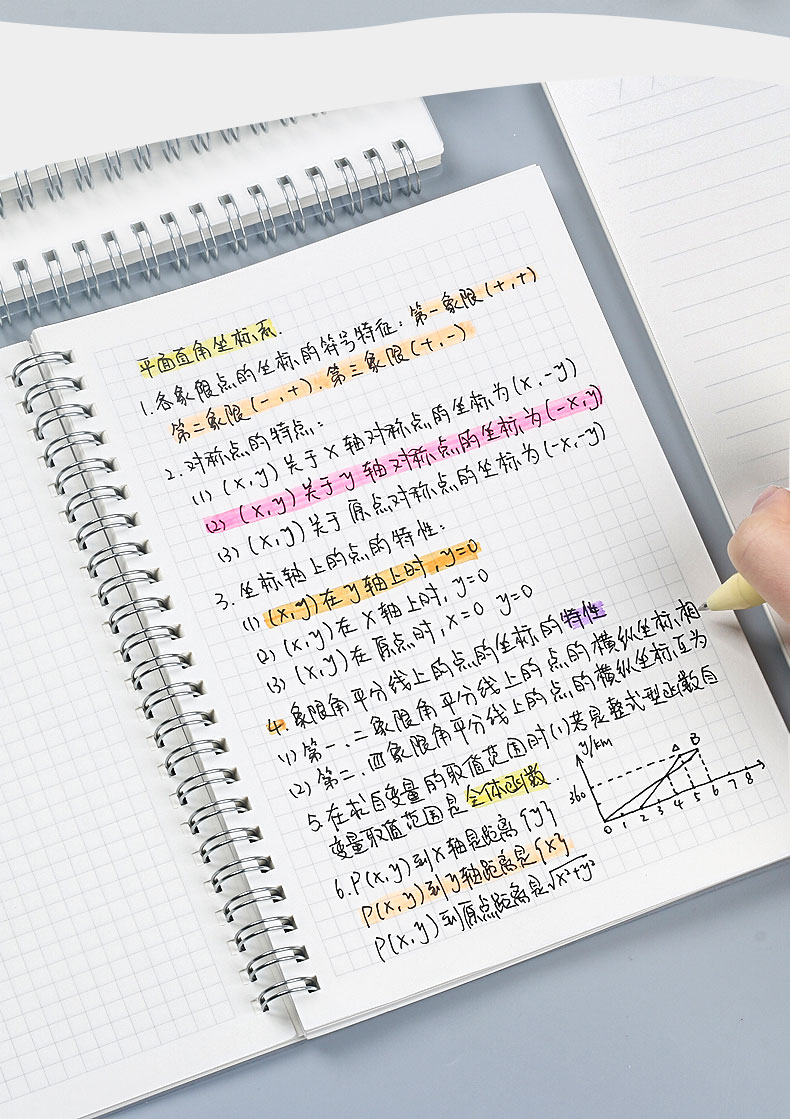 平面直角坐标系.
1.各象限点的坐标的符号特征：第一象限(+,+)
第二象限(-,+),第三象限(+,-)
2.对称点的特点:
(1) (x,y)关于x轴对称点的坐标为(x,-y)
(2) (x,y)关于y轴对称点的坐标为(-x,y)
(3) (x,y)关于原点对称点的坐标为(-x,-y)
3.坐标轴上的点的特性:
(1) (x,y)在y轴上时,y=0
(2) (x,y)在x轴上时,y=0
(3) (x,y)在原点时,x=0 y=0
4.象限角平分线上的点的坐标的特性
(1)第一、二象限角平分线上的点的横纵坐标相
(2)第二、四象限角平分线上的点的横纵坐标互为
5.在求自变量的取值范围时(1)若是整式型函数自
变量取值范围是全体函数.
6.P(x,y)到x轴是距离{y}
P(x,y)到y轴距离是{x}
P(x,y)到原点距离是√x²+y²
y/km
A B
360
0 1 2 3 4 5 6 7 8